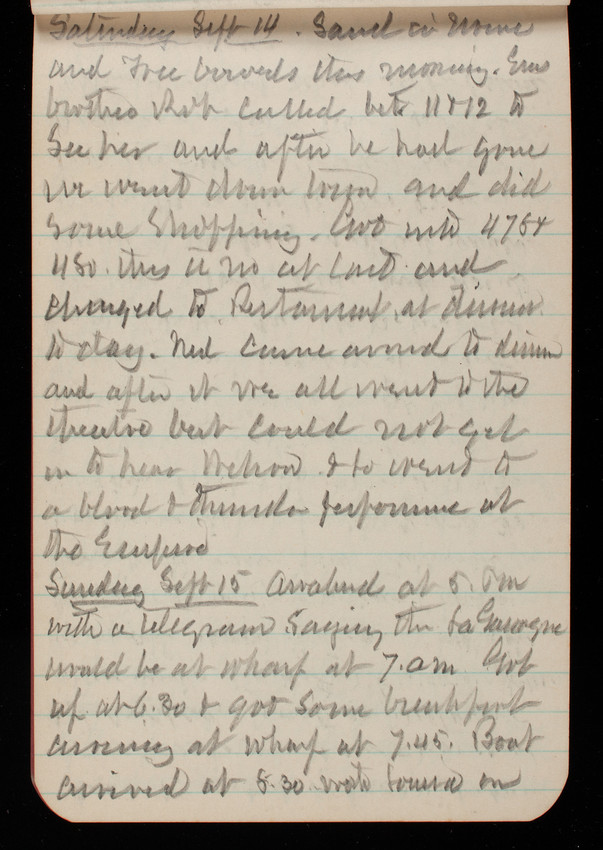 Saturday Sept 14. Sand in
and free bowels this morning. Ems
brother Rob called bet 11 & 12 to
See her and after he had gone
we went down town and did
Some Shopping. Got into 478 &
480. this at last and
changed to Restaurant at dinner
to day. Ned Came around to dinner
and after it we all went to the
theatre but could not get
in to hear & so went to
a blood & thunder performance at
the Empire
Sunday Sept 15 at 5. am
with a telegram Saying the La Gascogne
would be at wharf at 7. am Got
up at 6.30 & got Some breakfast
arriving at wharf at 7.45. Boat
arrived at 8.30 on